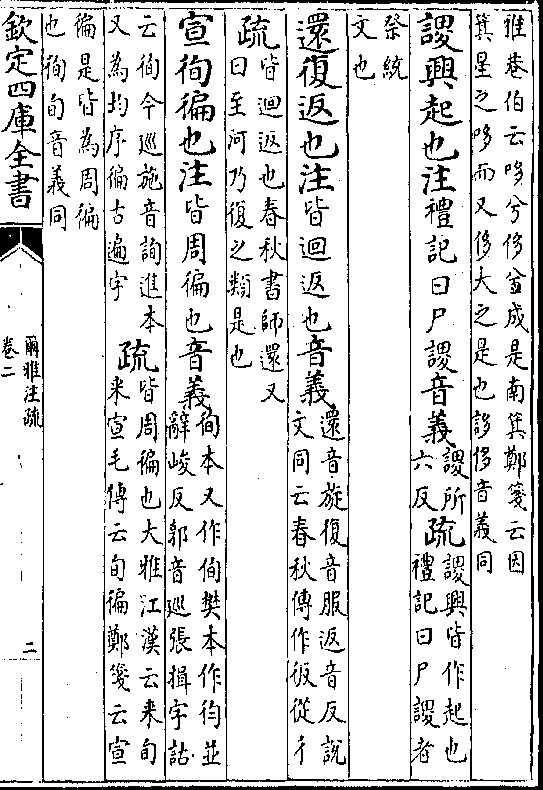 雅巷伯云哆兮侈兮成是南箕鄭箋云因
箕星之哆而又侈大之是也謻侈音義同
謖興起也注禮記曰尸謖音義謖所六反疏謖興皆作起也禮記曰尸謖者
祭統
文也
還復返也注皆迴返也音義還音旋復音服返音反説文同云春秋傳作彶從彳
疏皆迴返也春秋書師還又曰至河乃復之類是也
宣徇徧也注皆周徧也音義徇本又作侚樊本作徇並辭峻反郭音巡張揖字詁
云徇今巡施音詢進本又為均序徧古遍字疏皆周徧也大雅江漢云来旬来宣毛傳云旬徧鄭箋云宣
徧是皆為周徧
也徇旬音義同
欽定四庫全書
爾雅注疏
卷二
二